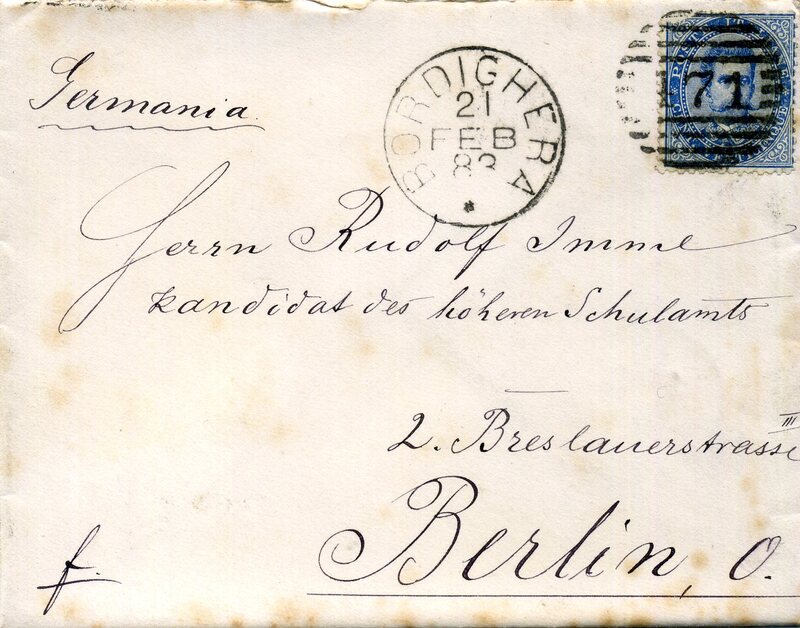 Germania
BORDIGHERA
21
FEB
83
71
POSTE ITALIANE
Herrn Rudolf Imme
Kandidat des höheren Schulamts
2. Breslauerstrasse III
Berlin, O.
f.